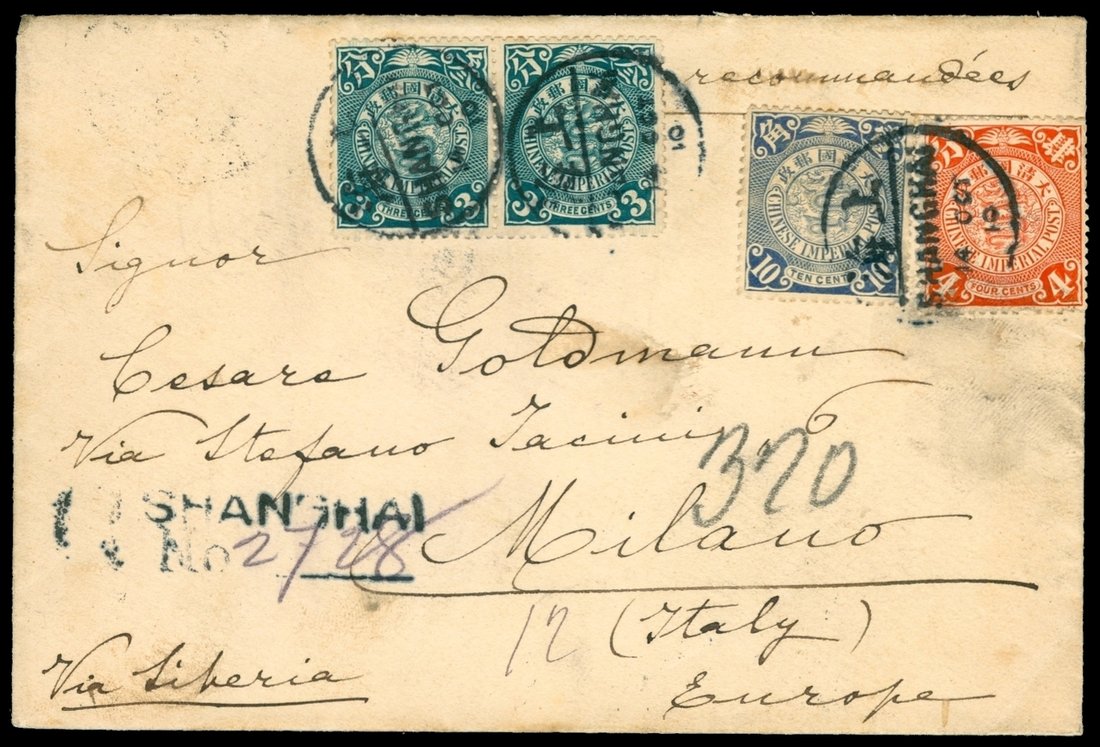 recommandées
分 叁
大清國郵政
CHINESE IMPERIAL POST
3 THREE CENTS 3
分 叁
大清國郵政
CHINESE IMPERIAL POST
3 THREE CENTS 3
角 壹
大清國郵政
CHINESE IMPERIAL POST
10 TEN CENTS 10
分 肆
大清國郵政
CHINESE IMPERIAL POST
4 FOUR CENTS 4
SHANGHAI
上
Signor
Cesare Goldmann
Via Stefano Jacini 6
370
SHANGHAI
R No 2728
Milano
12
(Italy)
Via Siberia
Europe